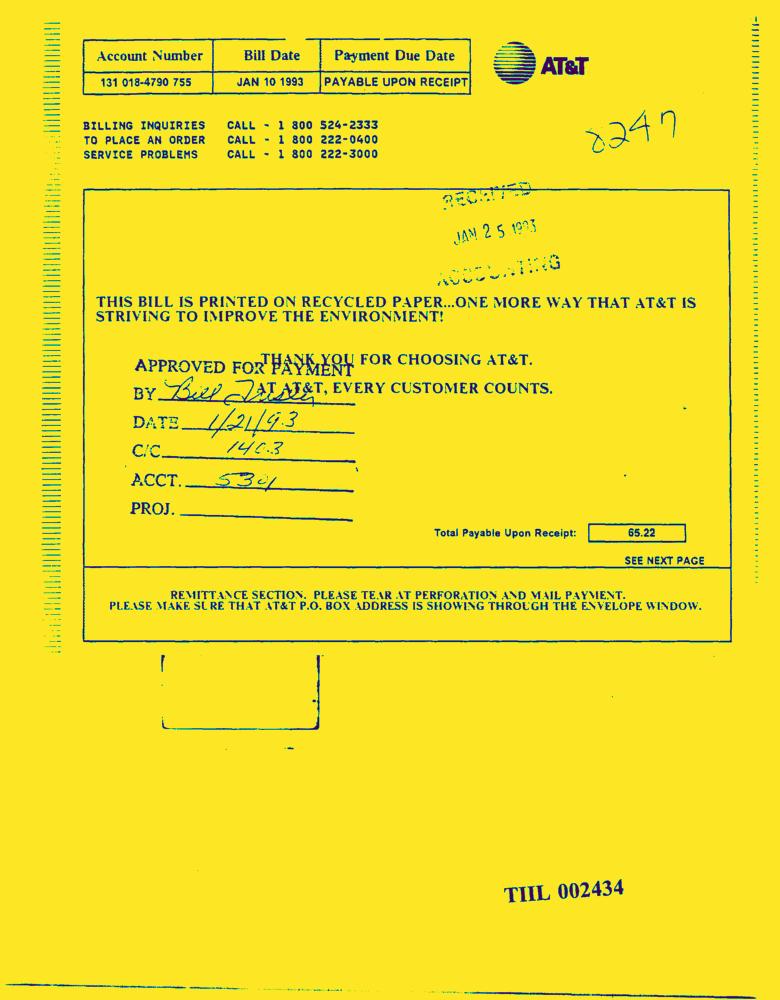 Account Number Bill Date Payment Due Date
131 018-4790 755 JAN 10 1993 PAYABLE UPON RECEIPT
AT&T
BILLING INQUIRIES CALL - 1 800 524-2333
TO PLACE AN ORDER CALL - 1 800 222-0400
SERVICE PROBLEMS CALL - 1 800 222-3000
RECEIVED
JAN 25 1993
ACCOUNTING
THIS BILL IS PRINTED ON RECYCLED PAPER...ONE MORE WAY THAT AT&T IS
STRIVING TO IMPROVE THE ENVIRONMENT!
THANK YOU FOR CHOOSING AT&T.
APPROVED FOR PAYMENT
AT AT&T, EVERY CUSTOMER COUNTS.
BY Bill
DATE 1/21/93
C/C 1403
ACCT. 5301
PROJ.
Total Payable Upon Receipt: 65.22
SEE NEXT PAGE
REMITTANCE SECTION. PLEASE TEAR AT PERFORATION AND MAIL PAYMENT.
PLEASE MAKE SURE THAT AT&T P.O. BOX ADDRESS IS SHOWING THROUGH THE ENVELOPE WINDOW.
TIIL 002434